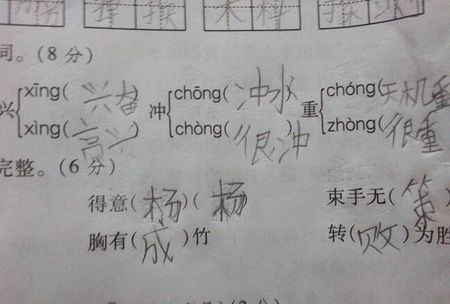 同。(8 分)
兴 xīng(兴奋) 冲 chōng(冲水) 重 chóng(天机重
xìng(高兴) chòng(很冲) zhòng(很重
完整。(6 分)
得意(杨)(杨 束手无(策)
胸有(成)竹 转(败)为胜